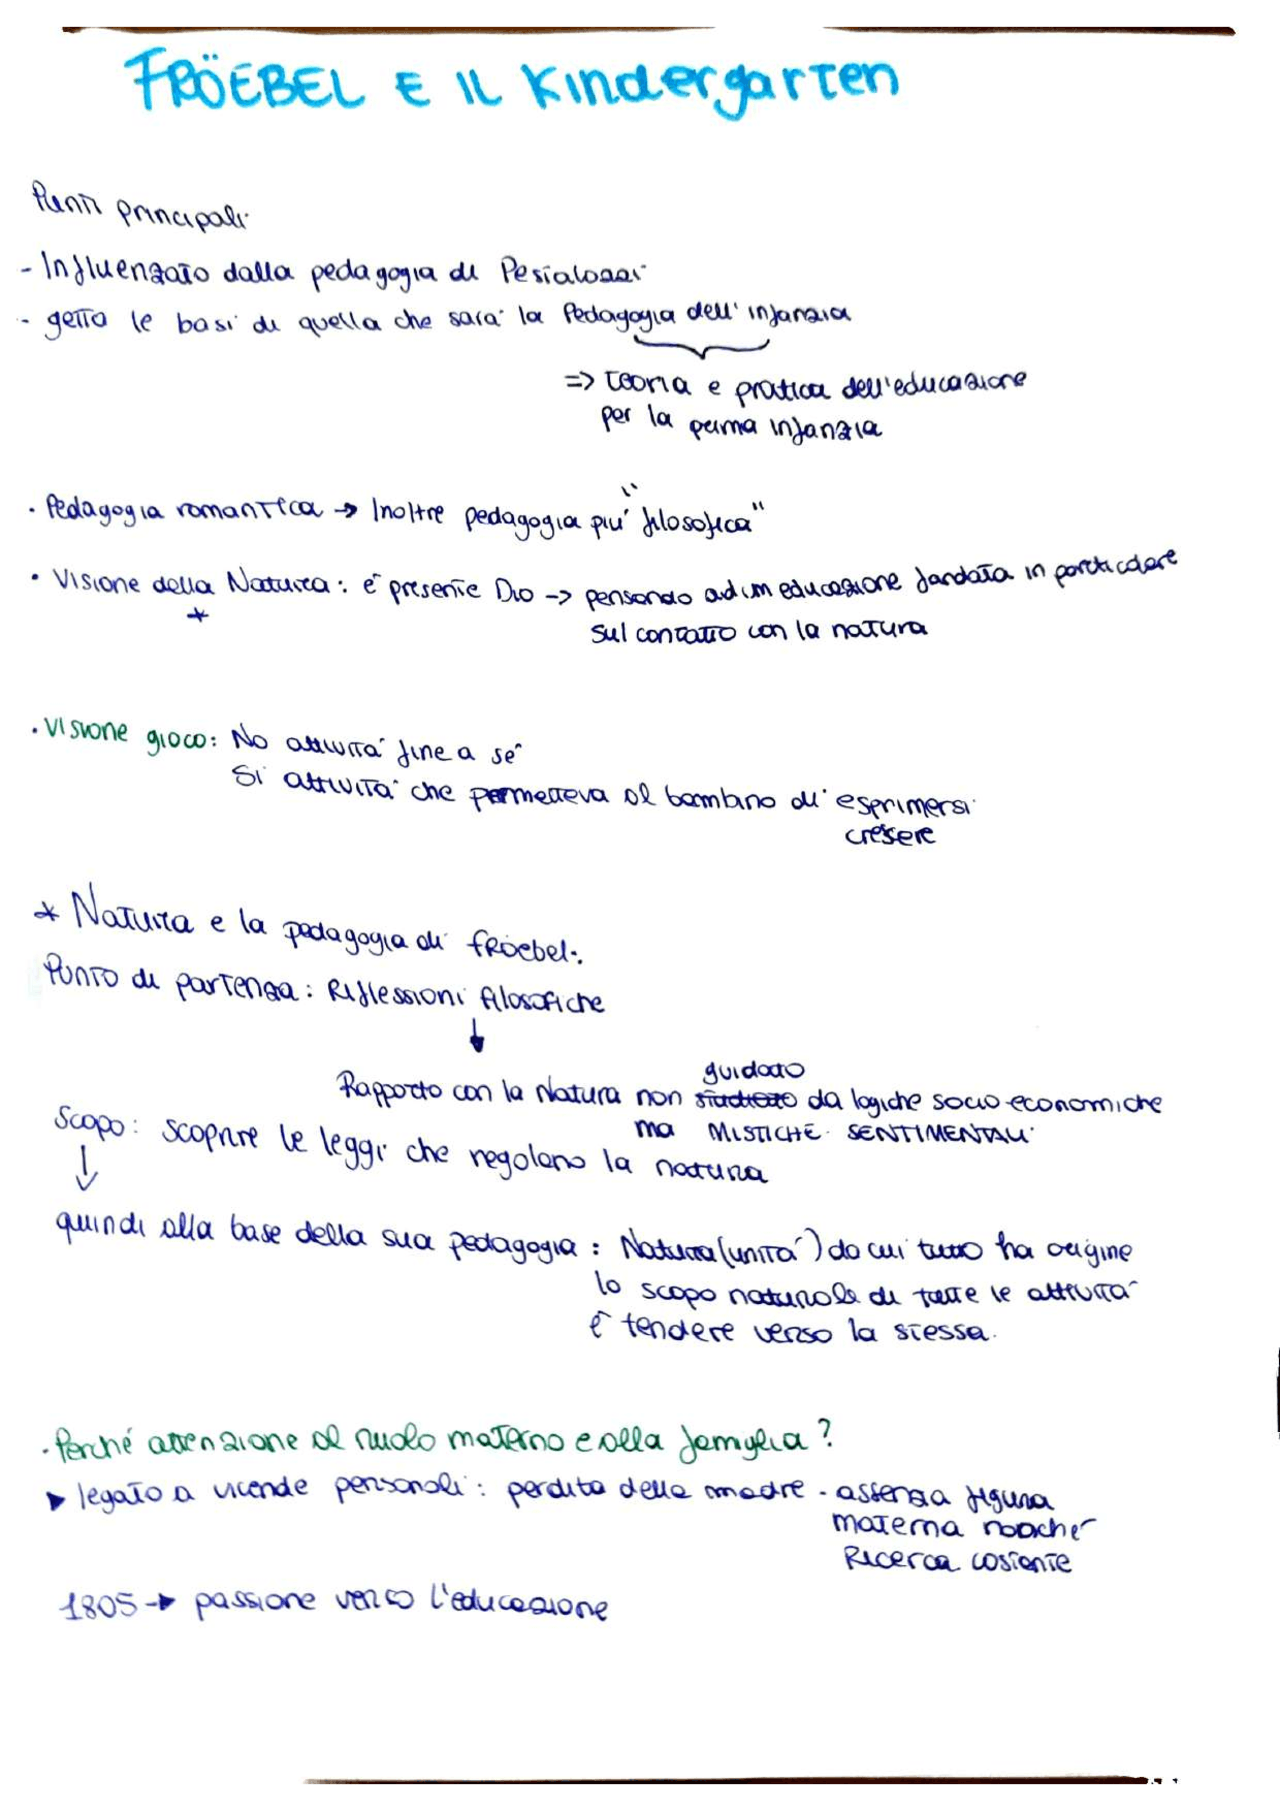 FRÖEBEL E IL Kindergarten
Punti principali
- Influenzato dalla pedagogia di Pestalozzi
- getto le basi di quella che sarà la Pedagogia dell'infanzia
=> teoria e pratica dell'educazione
per la prima infanzia
· Pedagogia romantica -> Inoltre pedagogia più "filosofica"
· Visione della Natura: é presente Dio -> pensando ad un educazione fondata in particolare
*
sul contatto con la natura
· Visione gioco: No attività fine a sé
Sì attività che permetteva al bambino di esprimersi
crescere
* Natura e la pedagogia di fröebel:
Punto di partenza: Riflessioni filosofiche
↓
guidato
Rapporto con la Natura non studiato da logiche socio-economiche
ma MISTICHE SENTIMENTALI
Scopo: scoprire le leggi che regolano la natura
↓
quindi alla base della sua pedagogia: Natura (unità) da cui tutto ha origine
lo scopo naturale di tutte le attività
è tendere verso la stessa.
· Perché attenzione al ruolo materno e alla famiglia?
▶ legato a vicende personali: perdita della madre - assenza figura
materna nonché
Ricerca costante
1805 -> passione verso l'educazione